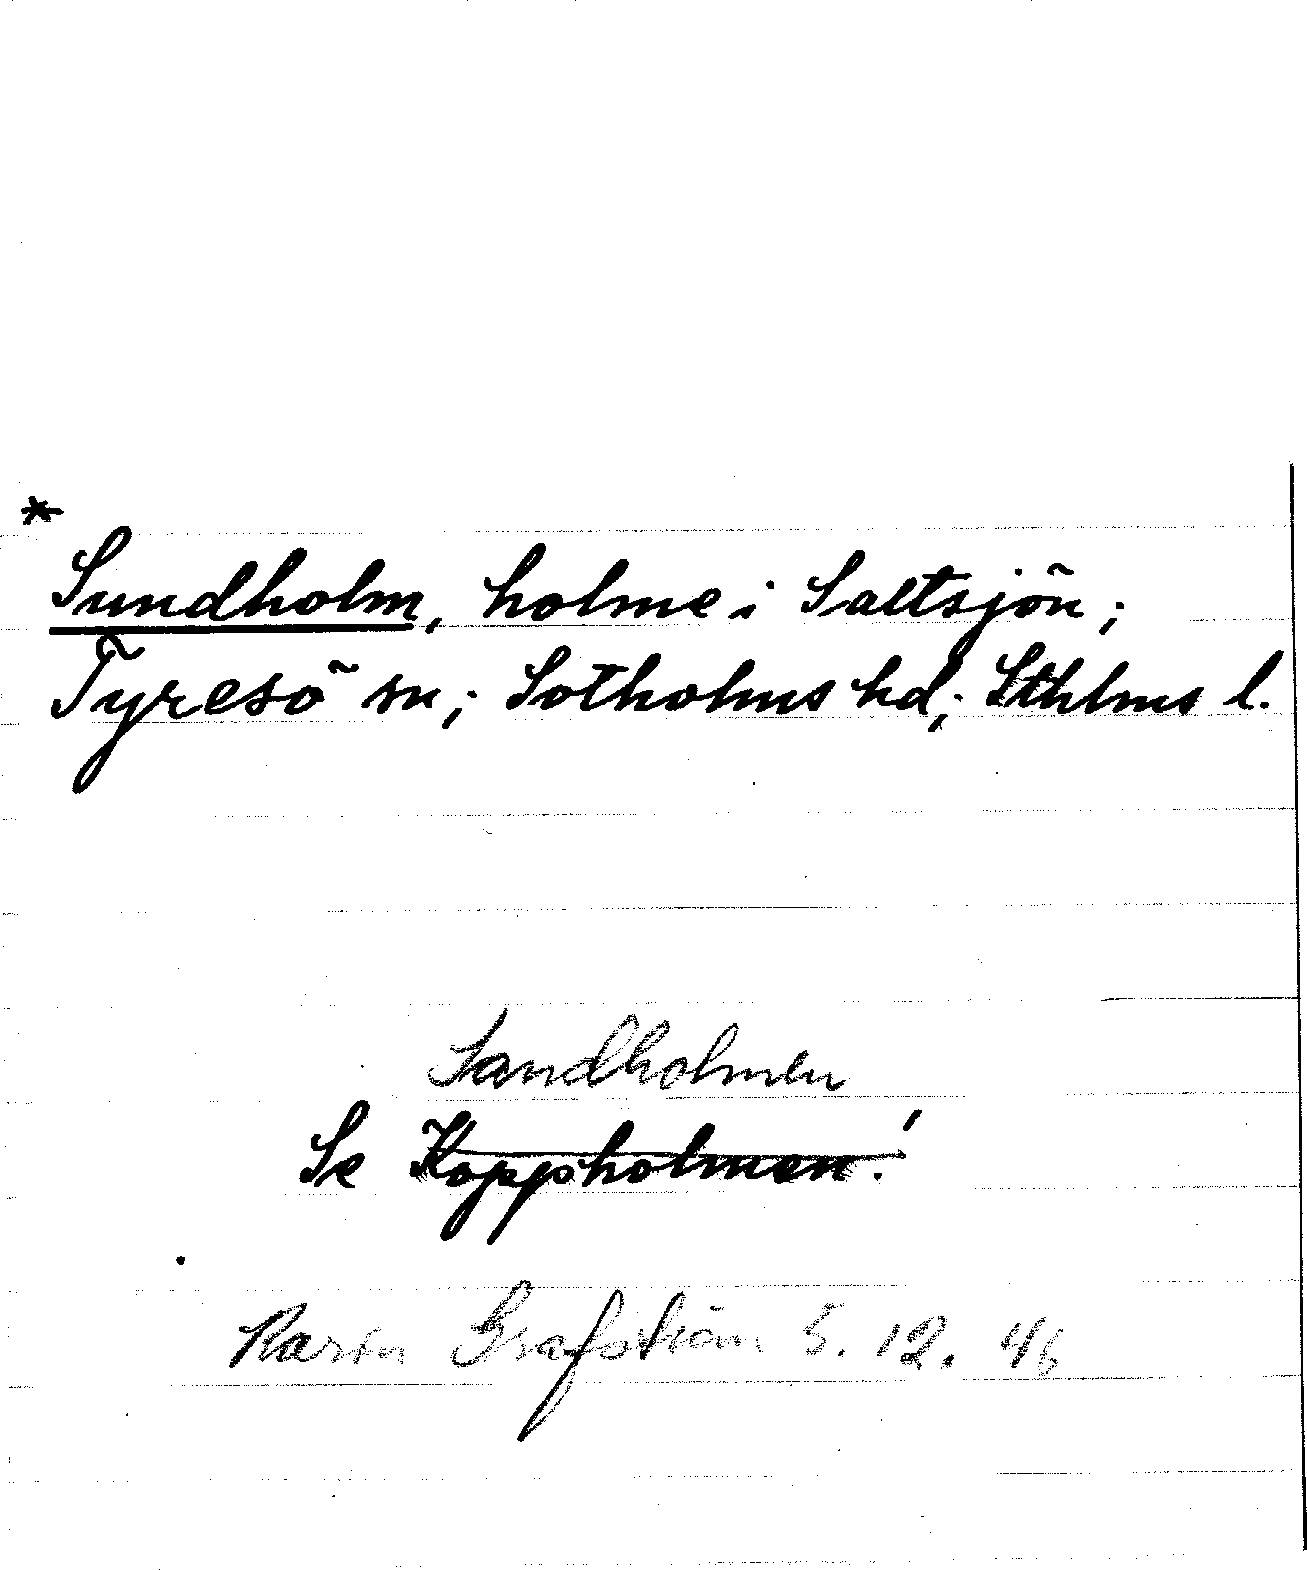 *
Sundholm, holme i Saltsjön;
Tyresö sn; Sotholms hd; Sthlms l.
Sandholmen
Se Koppsholmen!
Karin Grafström 5. 12. 46